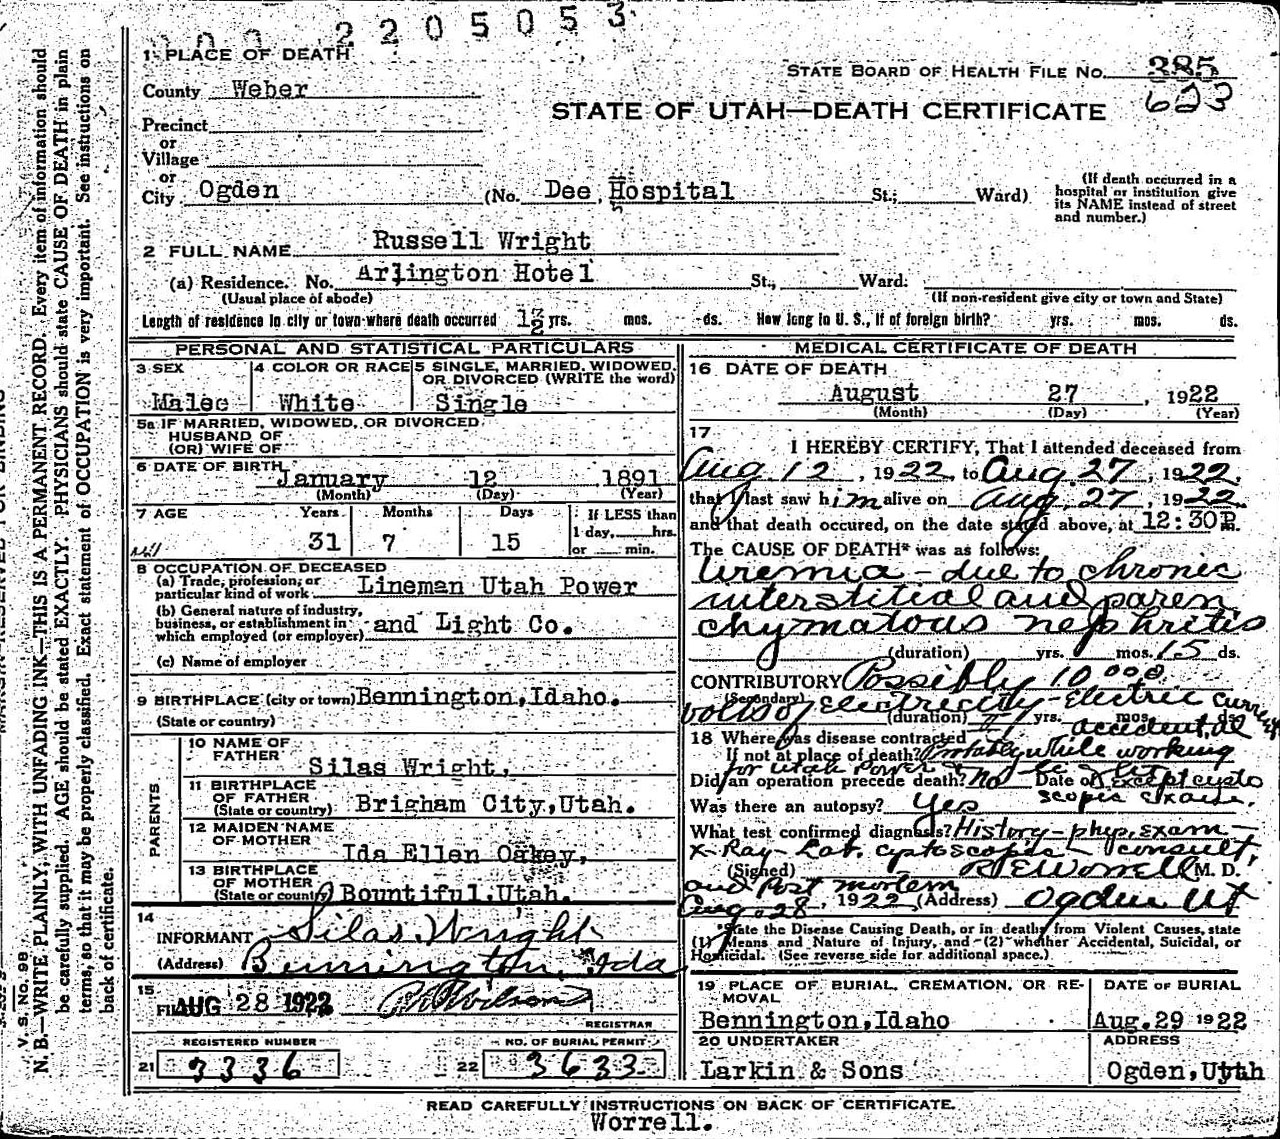 2205053
1 PLACE OF DEATH
STATE BOARD OF HEALTH FILE No. 385
County Weber
623
STATE OF UTAH—DEATH CERTIFICATE
Precinct
or
Village
or
City Ogden (No. Dee Hospital St.; Ward)
(If death occurred in a hospital or institution give its NAME instead of street and number.)
2 FULL NAME Russell Wright
(a) Residence. No. Arlington Hotel St., Ward.
(Usual place of abode) (If non-resident give city or town and State)
Length of residence in city or town where death occurred yrs. mos. ds. How long in U. S., if of foreign birth? yrs. mos. ds.
PERSONAL AND STATISTICAL PARTICULARS
3 SEX 4 COLOR OR RACE 5 SINGLE, MARRIED, WIDOWED, OR DIVORCED (WRITE the word)
Malee White Single
5a IF MARRIED, WIDOWED, OR DIVORCED
HUSBAND OF
(OR) WIFE OF
6 DATE OF BIRTH January 12 1891
(Month) (Day) (Year)
7 AGE Years Months Days If LESS than
1 day, hrs.
31 7 15 or min.
8 OCCUPATION OF DECEASED
(a) Trade, profession, or particular kind of work Lineman Utah Power
(b) General nature of industry, business, or establishment in which employed (or employer) and Light Co.
(c) Name of employer
9 BIRTHPLACE (city or town) Bennington, Idaho.
(State or country)
PARENTS
10 NAME OF FATHER Silas Wright,
11 BIRTHPLACE OF FATHER (State or country) Brigham City, Utah.
12 MAIDEN NAME OF MOTHER Ida Ellen Oakey,
13 BIRTHPLACE OF MOTHER (State or country) Bountiful, Utah.
14
INFORMANT Silas Wright
(Address) Bennington, Ida
15
FILED AUG 28 1922
REGISTRAR
REGISTERED NUMBER NO. OF BURIAL PERMIT
21 3336 22 3633
MEDICAL CERTIFICATE OF DEATH
16 DATE OF DEATH
August 27, 1922
(Month) (Day) (Year)
17
I HEREBY CERTIFY, That I attended deceased from
Aug. 12, 1922, to Aug. 27, 1922,
that I last saw him alive on Aug. 27, 1922
and that death occured, on the date stated above, at 12:30P m.
The CAUSE OF DEATH* was as follows:
Uremia - due to chronic
interstitial and paren
chymatous nephritis
(duration) yrs. mos. 15 ds.
CONTRIBUTORY Possibly 10 000
(Secondary)
volts of Electricity - Electric current
(duration) yrs. mos. ds.
accidental
18 Where was disease contracted
If not at place of death? Probably while working
for Utah Power & Light
Did an operation precede death? No Date of except cysto
scopic exam.
Was there an autopsy? Yes
What test confirmed diagnosis? History - phys. exam -
X-Ray - Lab. cystoscopic - consult,
(Signed) R E Worrell M. D.
and Post mortem
Aug. 28, 1922 (Address) Ogden Ut
*State the Disease Causing Death, or in deaths from Violent Causes, state
(1) Means and Nature of Injury, and (2) whether Accidental, Suicidal, or
Homicidal. (See reverse side for additional space.)
19 PLACE OF BURIAL, CREMATION, OR REMOVAL DATE OF BURIAL
Bennington, Idaho Aug. 29 1922
20 UNDERTAKER ADDRESS
Larkin & Sons Ogden, Utah
READ CAREFULLY INSTRUCTIONS ON BACK OF CERTIFICATE.
Worrell.
V. S. No. 98
N. B.—WRITE PLAINLY, WITH UNFADING INK—THIS IS A PERMANENT RECORD. Every item of information should
be carefully supplied. AGE should be stated EXACTLY. PHYSICIANS should state CAUSE OF DEATH in plain
terms, so that it may be properly classified. Exact statement of OCCUPATION is very important. See instructions on
back of certificate.